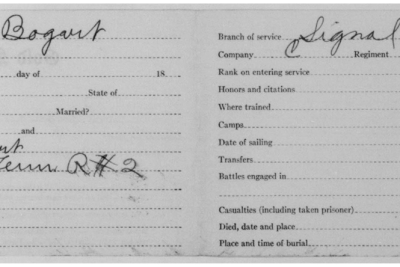 Bogart
day of 18
State of
Married?
and
Tenn R#2
Branch of service Signal
Company Regiment
Rank on entering service
Honors and citations
Where trained
Camps
Date of sailing
Transfers
Battles engaged in
Casualties (including taken prisoner)
Died, date and place
Place and time of burial